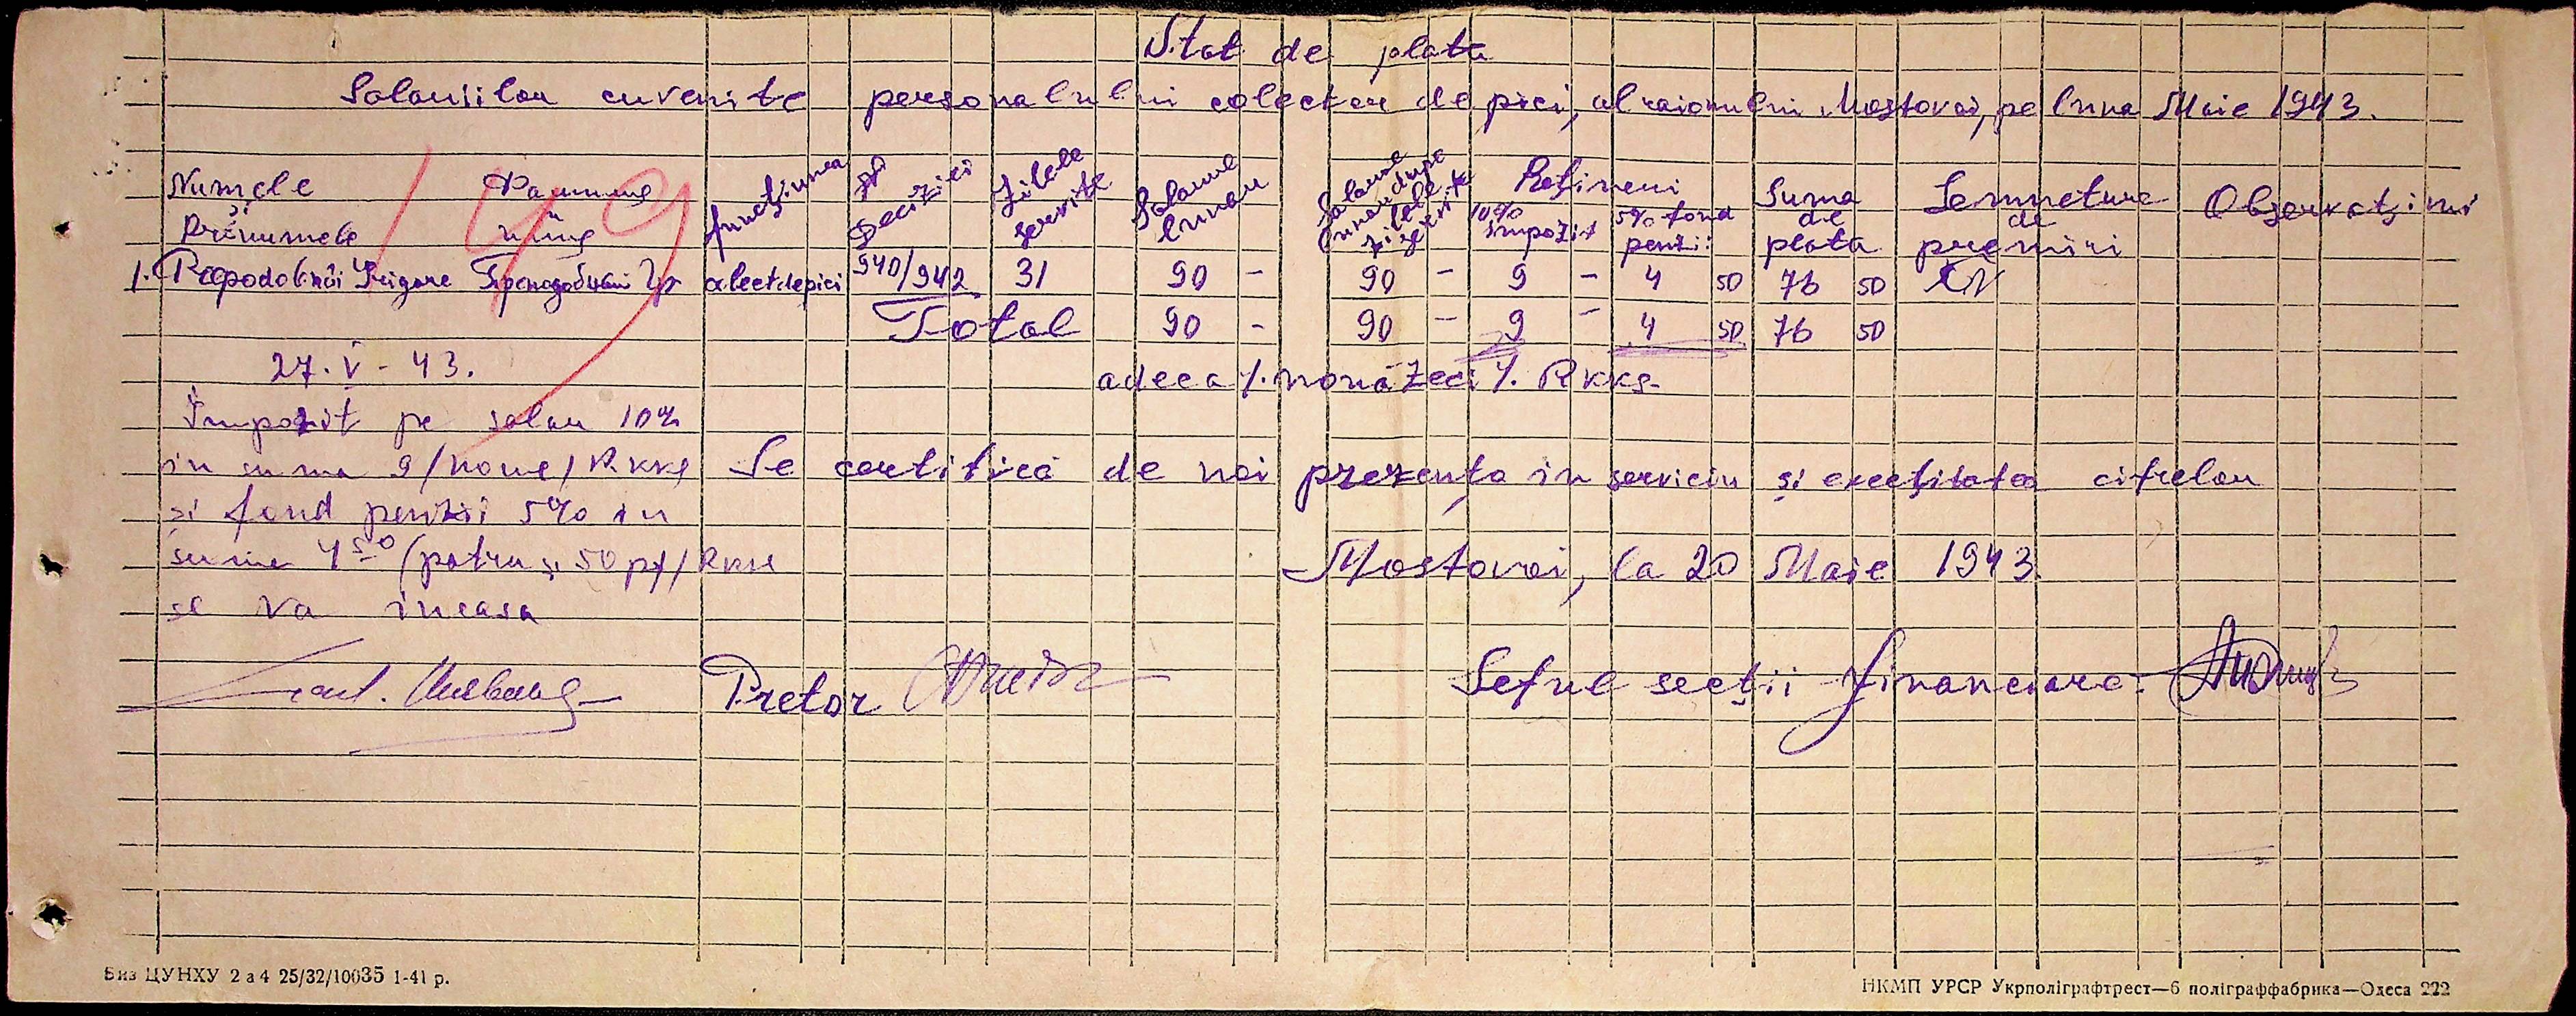 Stat de plata
Salariilor cuvenite personalului colector de piei, al raionului Mostovoi, pe luna Maie 1943.
Numele și Prenumele
Функциunea
Decizici
Zilele servite
Salarul lunar
Salarul lunar dupa zilele servite
Rețineri
10% impozit
5% fond penzii
Suma de plata
Semnetura de primiri
Observatzini
1. Prepodobnâi Grigore Преподобний Гр colect de piei 940/942 31 90 - 90 - 9 - 4 50 76 50
Total 90 - 90 - 9 - 4 50 76 50
27. V - 43.
adeca /. nouăzeci /. Rkks
Impozit pe salar 10%
in suma 9 /noue/ Rkks
și fond penzii 5% in
suma 4 50 (patru și 50 pf/ Rkks
se va incasa
Se certifică de noi prezența in serviciu și exectitatea cifrelor
Mostovoi, la 20 Maie 1943.
Pretor
Seful secții financiare.
Биз ЦУНХУ 2 а 4 25/32/10035 1-41 р.
НКМП УРСР Укрполіграфтрест—6 поліграффабрика—Одеса 222